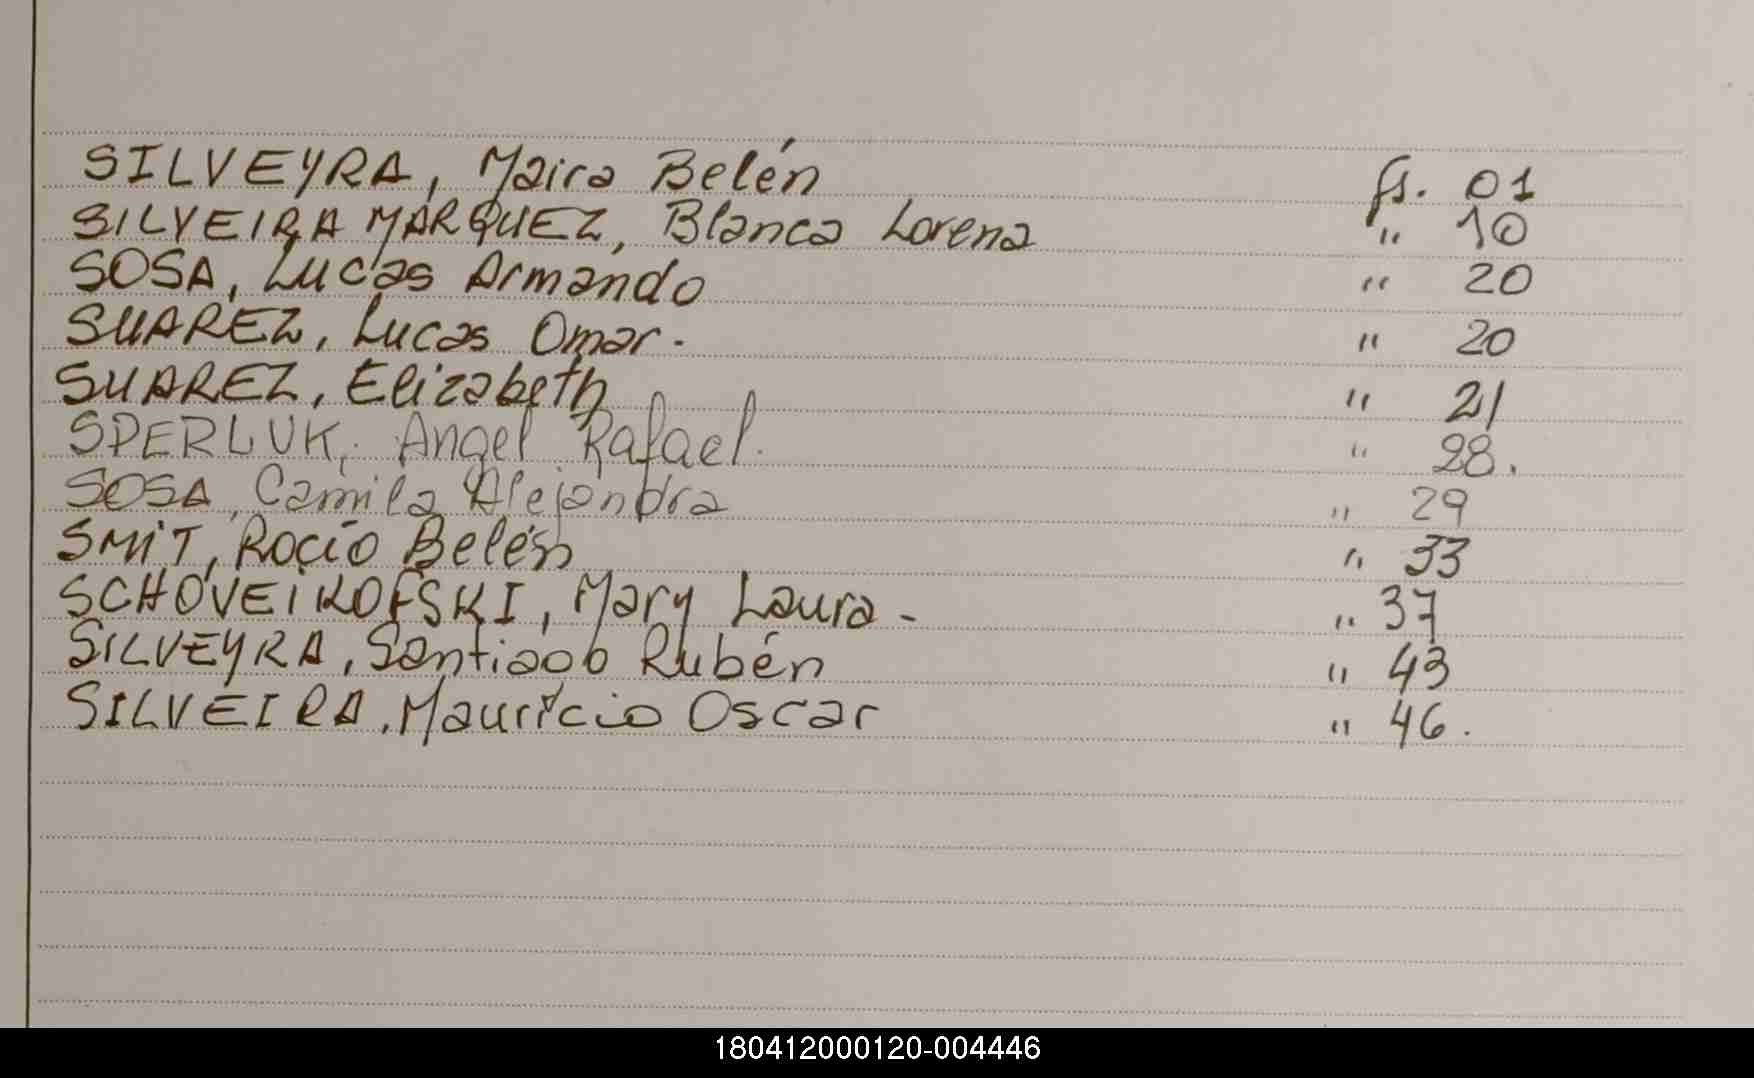 SILVEYRA, Maira Belén fs. 01
SILVEIRA MARQUEZ, Blanca Lorena " 10
SOSA, Lucas Armando " 20
SUAREZ, Lucas Omar. " 20
SUAREZ, Elizabeth " 21
SPERLUK, Angel Rafael. " 28.
SOSA, Camila Alejandra " 29
SMIT, Rocío Belén " 33
SCHOVEIKOFSKI, Mary Laura - " 37
SILVEYRA, Santiago Rubén " 43
SILVEIRA, Mauricio Oscar " 46.
180412000120-004446